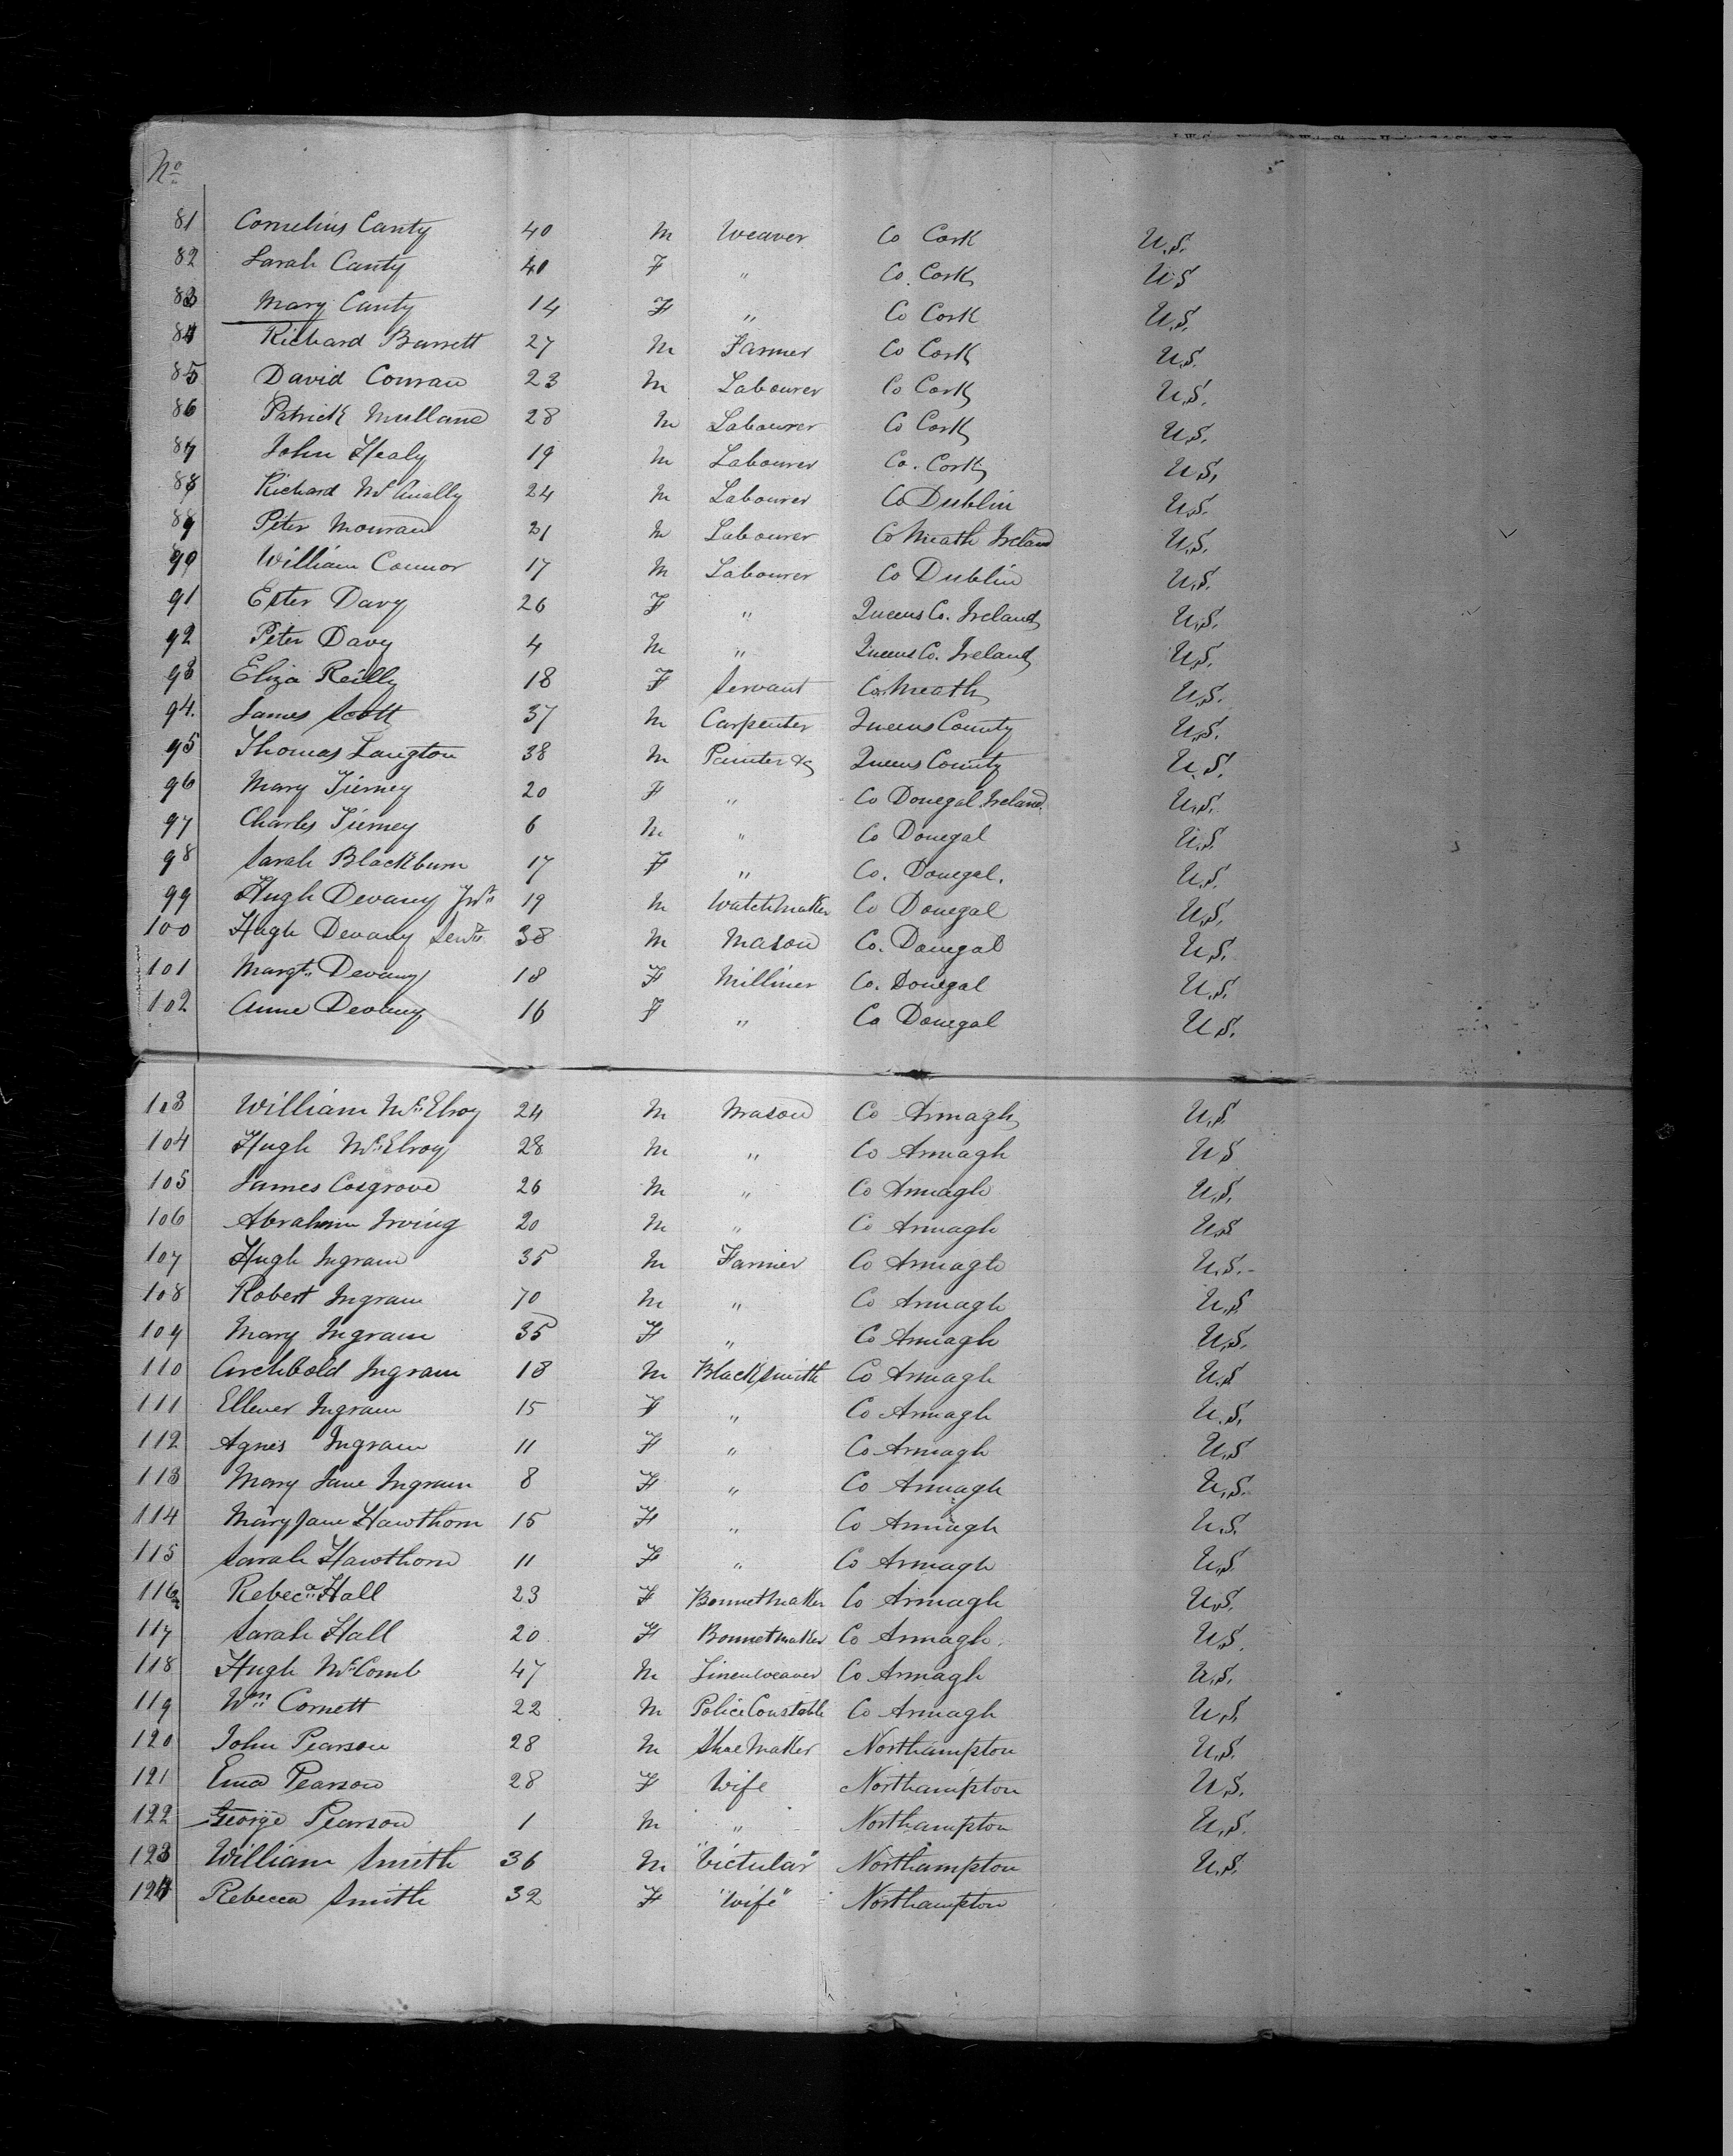 No
81 Cornelius Canty 40 M Weaver Co Cork U.S.
82 Sarah Canty 40 F " Co. Cork U.S
83 Mary Canty 14 F " Co Cork U.S.
84 Richard Barrett 27 M Farmer Co Cork U.S.
85 David Conran 23 M Labourer Co Cork U.S.
86 Patrick Mullane 28 M Labourer Co Cork U.S.
87 John Healy 19 M Labourer Co. Cork U.S,
88 Richard McAnally 24 M Labourer Co Dublin U.S.
89 Peter Mouran 21 M Labourer Co Meath Ireland U.S.
90 William Connor 17 M Labourer Co Dublin U.S.
91 Ester Davy 26 F " Queens Co. Ireland U.S.
92 Peter Davy 4 M " Queens Co. Ireland U.S.
93 Eliza Reilly 18 F Servant Co. Meath U.S.
94. James Scott 37 M Carpenter Queens County U.S.
95 Thomas Langton 38 M Painter & Queens County U.S.
96 Mary Tierney 20 F " Co Donegal Ireland. U.S.
97 Charles Tierney 6 M " Co Donegal U.S.
98 Sarah Blackburn 17 F " Co. Donegal. U.S.
99 Hugh Devany Junr 19 M Watchmaker Co Donegal U.S.
100 Hugh Devany Senr 38 M Mason Co. Donegal U.S.
101 Margt. Devany 18 F Milliner Co. Donegal U.S.
102 Anne Devany 16 F " Co Donegal U.S.
103 William McElroy 24 M Mason Co Armagh U.S
104 Hugh McElroy 28 M " Co Armagh U S
105 James Cosgrove 26 M " Co Armagh U.S.
106 Abraham Irving 20 M " Co Armagh U.S
107 Hugh Ingram 35 M Farmer Co Armagh U.S.-
108 Robert Ingram 70 M " Co Armagh U.S
109 Mary Ingram 35 F " Co Armagh U.S.
110 Archbold Ingram 18 M Blacksmith Co Armagh U.S
111 Ellener Ingram 15 F " Co Armagh U.S.
112 Agnes Ingram 11 F " Co Armagh U.S
113 Mary Jane Ingram 8 F " Co Armagh U.S.
114 Mary Jane Hawthorn 15 F " Co Armagh U.S.
115 Sarah Hawthorn 11 F " Co Armagh U.S
116 Rebeca Hall 23 F Bonnetmaker Co Armagh U.S.
117 Sarah Hall 20 F Bonnetmaker Co Armagh. U.S.
118 Hugh McComb 47 M Linenweaver Co Armagh U.S.
119 Wm Cornett 22 M Police Constable Co Armagh U.S
120 John Pearson 28 M Shoe Maker Northampton U.S.
121 Ema Pearson 28 F Wife Northampton U.S.
122 George Pearson 1 M " Northampton U.S.
123 William Smith 36 M "Victular" Northampton U.S.
124 Rebecca Smith 32 F "Wife" Northampton